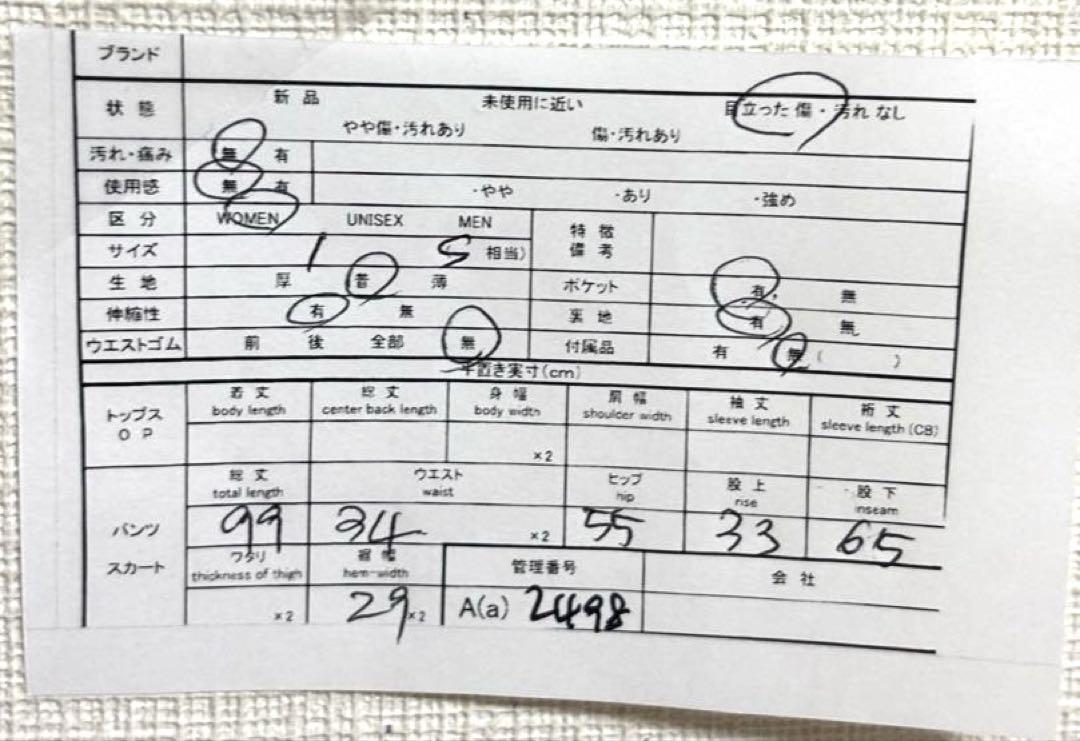 ブランド
状態 新品 未使用に近い 目立った傷・汚れなし
やや傷・汚れあり 傷・汚れあり
汚れ・痛み 無 有
使用感 無 有 ・やや ・あり ・強め
区分 WOMEN UNISEX MEN 特徴備考
サイズ 1 S 相当)
生地 厚 普 薄 ポケット 有 無
伸縮性 有 無 裏地 有 無
ウエストゴム 前 後 全部 無 付属品 有 無 ( )
平置き実寸(cm)
トップス OP 着丈 総丈 身幅 肩幅 袖丈 裄丈
body length center back length body width shoulder width sleeve length sleeve length (CB)
×2
総丈 ウエスト ヒップ 股上 股下
total length waist hip rise inseam
パンツ 99 34 ×2 55 33 65
スカート ワタリ 裾幅 管理番号 会社
thickness of thigh hem-width
×2 29 ×2 A(a) 2498